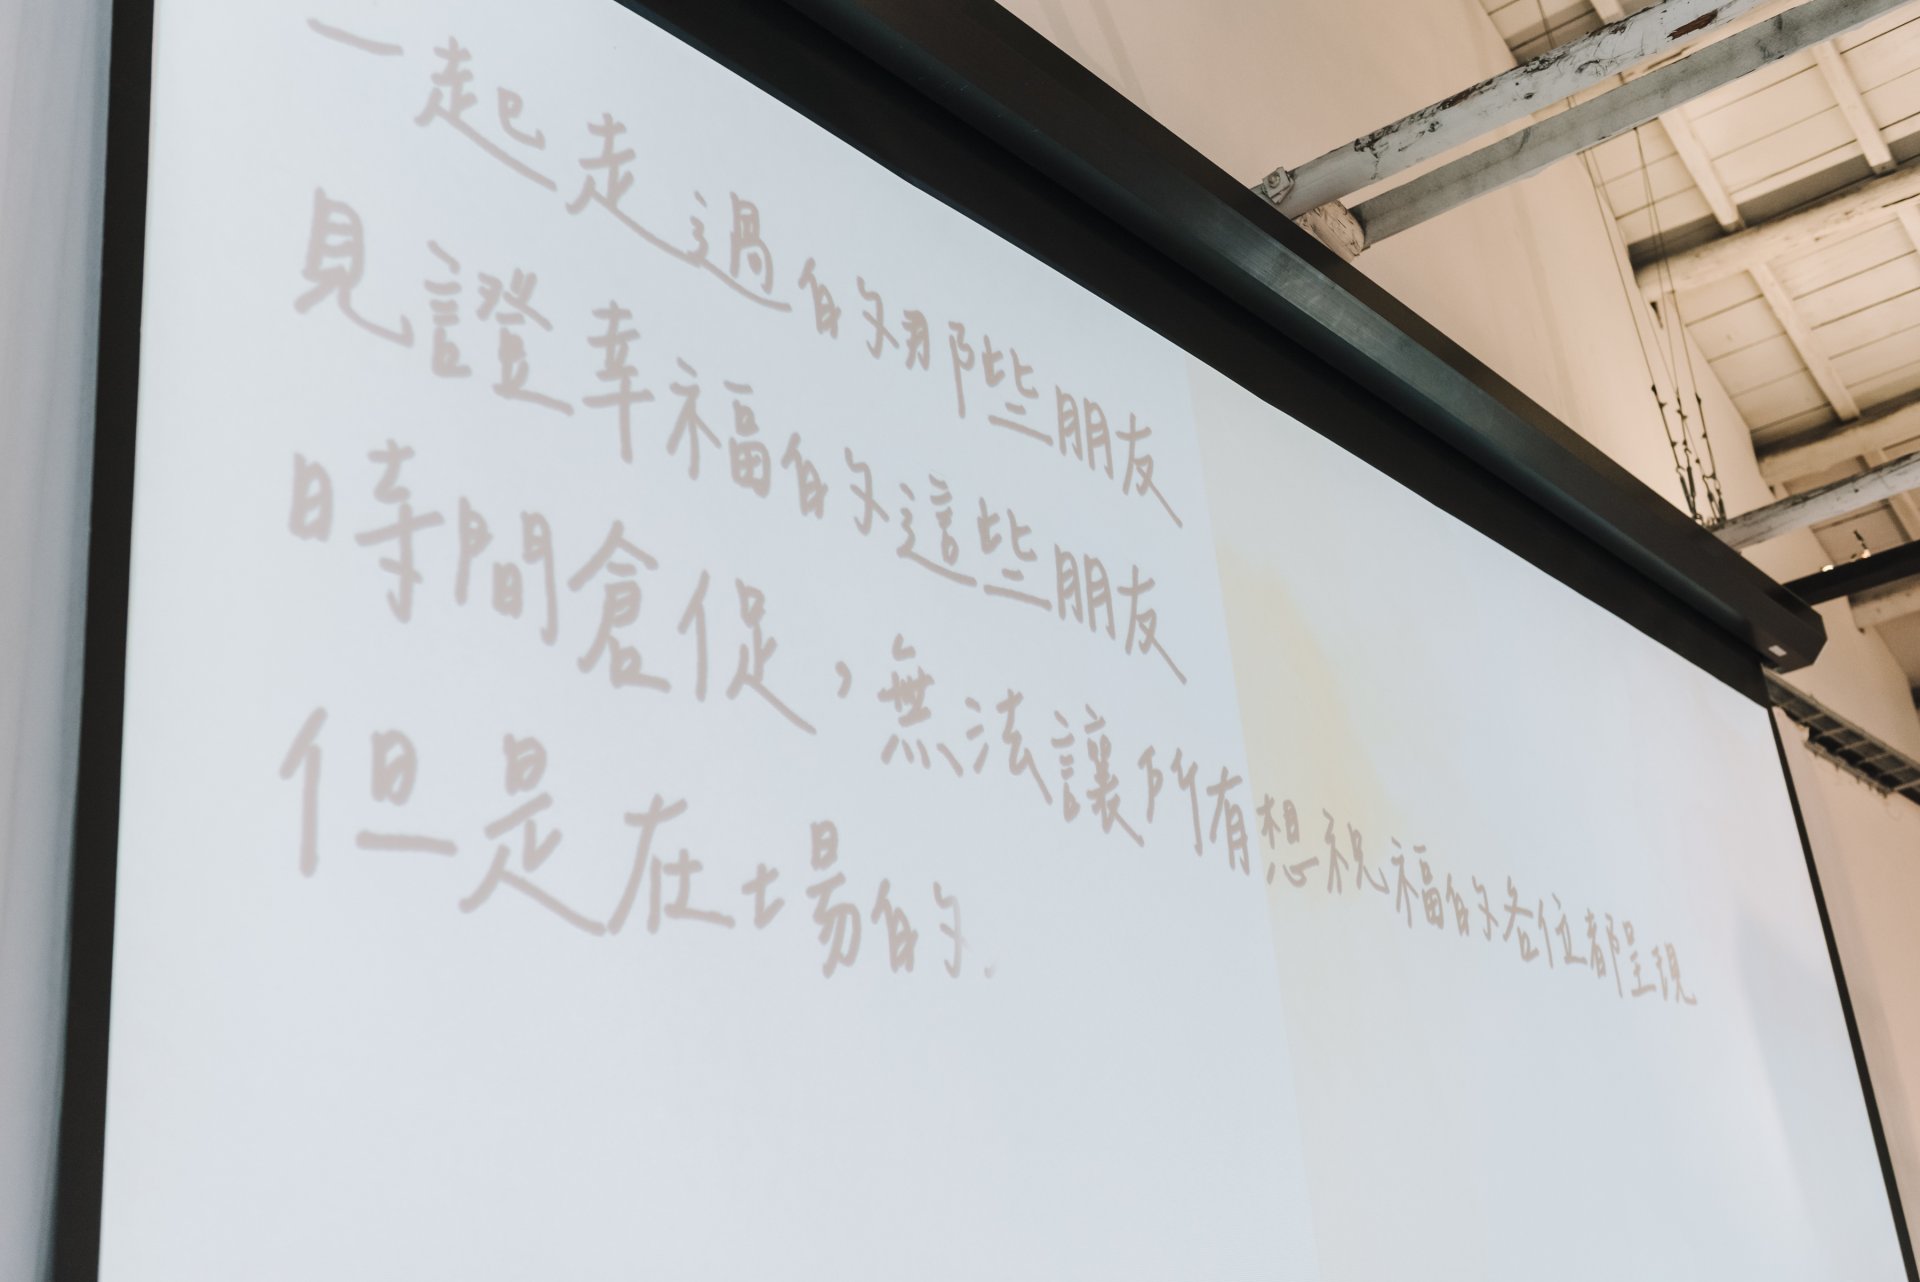 一起走過的那些朋友
見證幸福的這些朋友
時間倉促，無法讓所有想祝福的各位都呈現
但是在場的